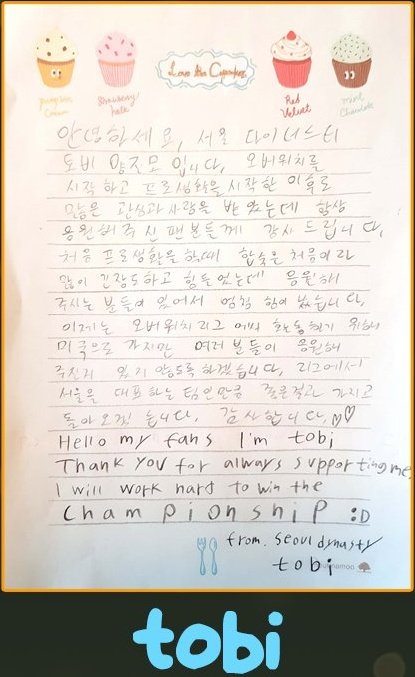 Love this Cupcakes
Pumpkin Cream
Strawberry
Red Velvet
mint Chocolate
안녕하세요, 서울 다이너스티
토비 양진모 입니다, 오버워치를
시작하고 프로생활을 시작한 이후로
많은 관심과 사랑을 받았는데 항상
응원해주신 팬분들께 감사 드립니다,
처음 프로생활을 할때 합숙은 처음이라
많이 긴장도하고 힘들었는데 응원해
주시는 분들이 있어서 엄청 힘이 났습니다,
이제는 오버워치리그 에서 활동하기 위해
미국으로 가지만 여러분들이 응원해
주신거 잊지 않도록 하겠습니다, 리그에서
서울을 대표하는 팀인만큼 좋은결과 가지고
돌아오겠습니다, 감사합니다,♡♡
Hello my fans I'm tobi
Thank you for always supporting me,
I will work hard to win the
championship :D
from. seoul dynasty
tobi
tobi